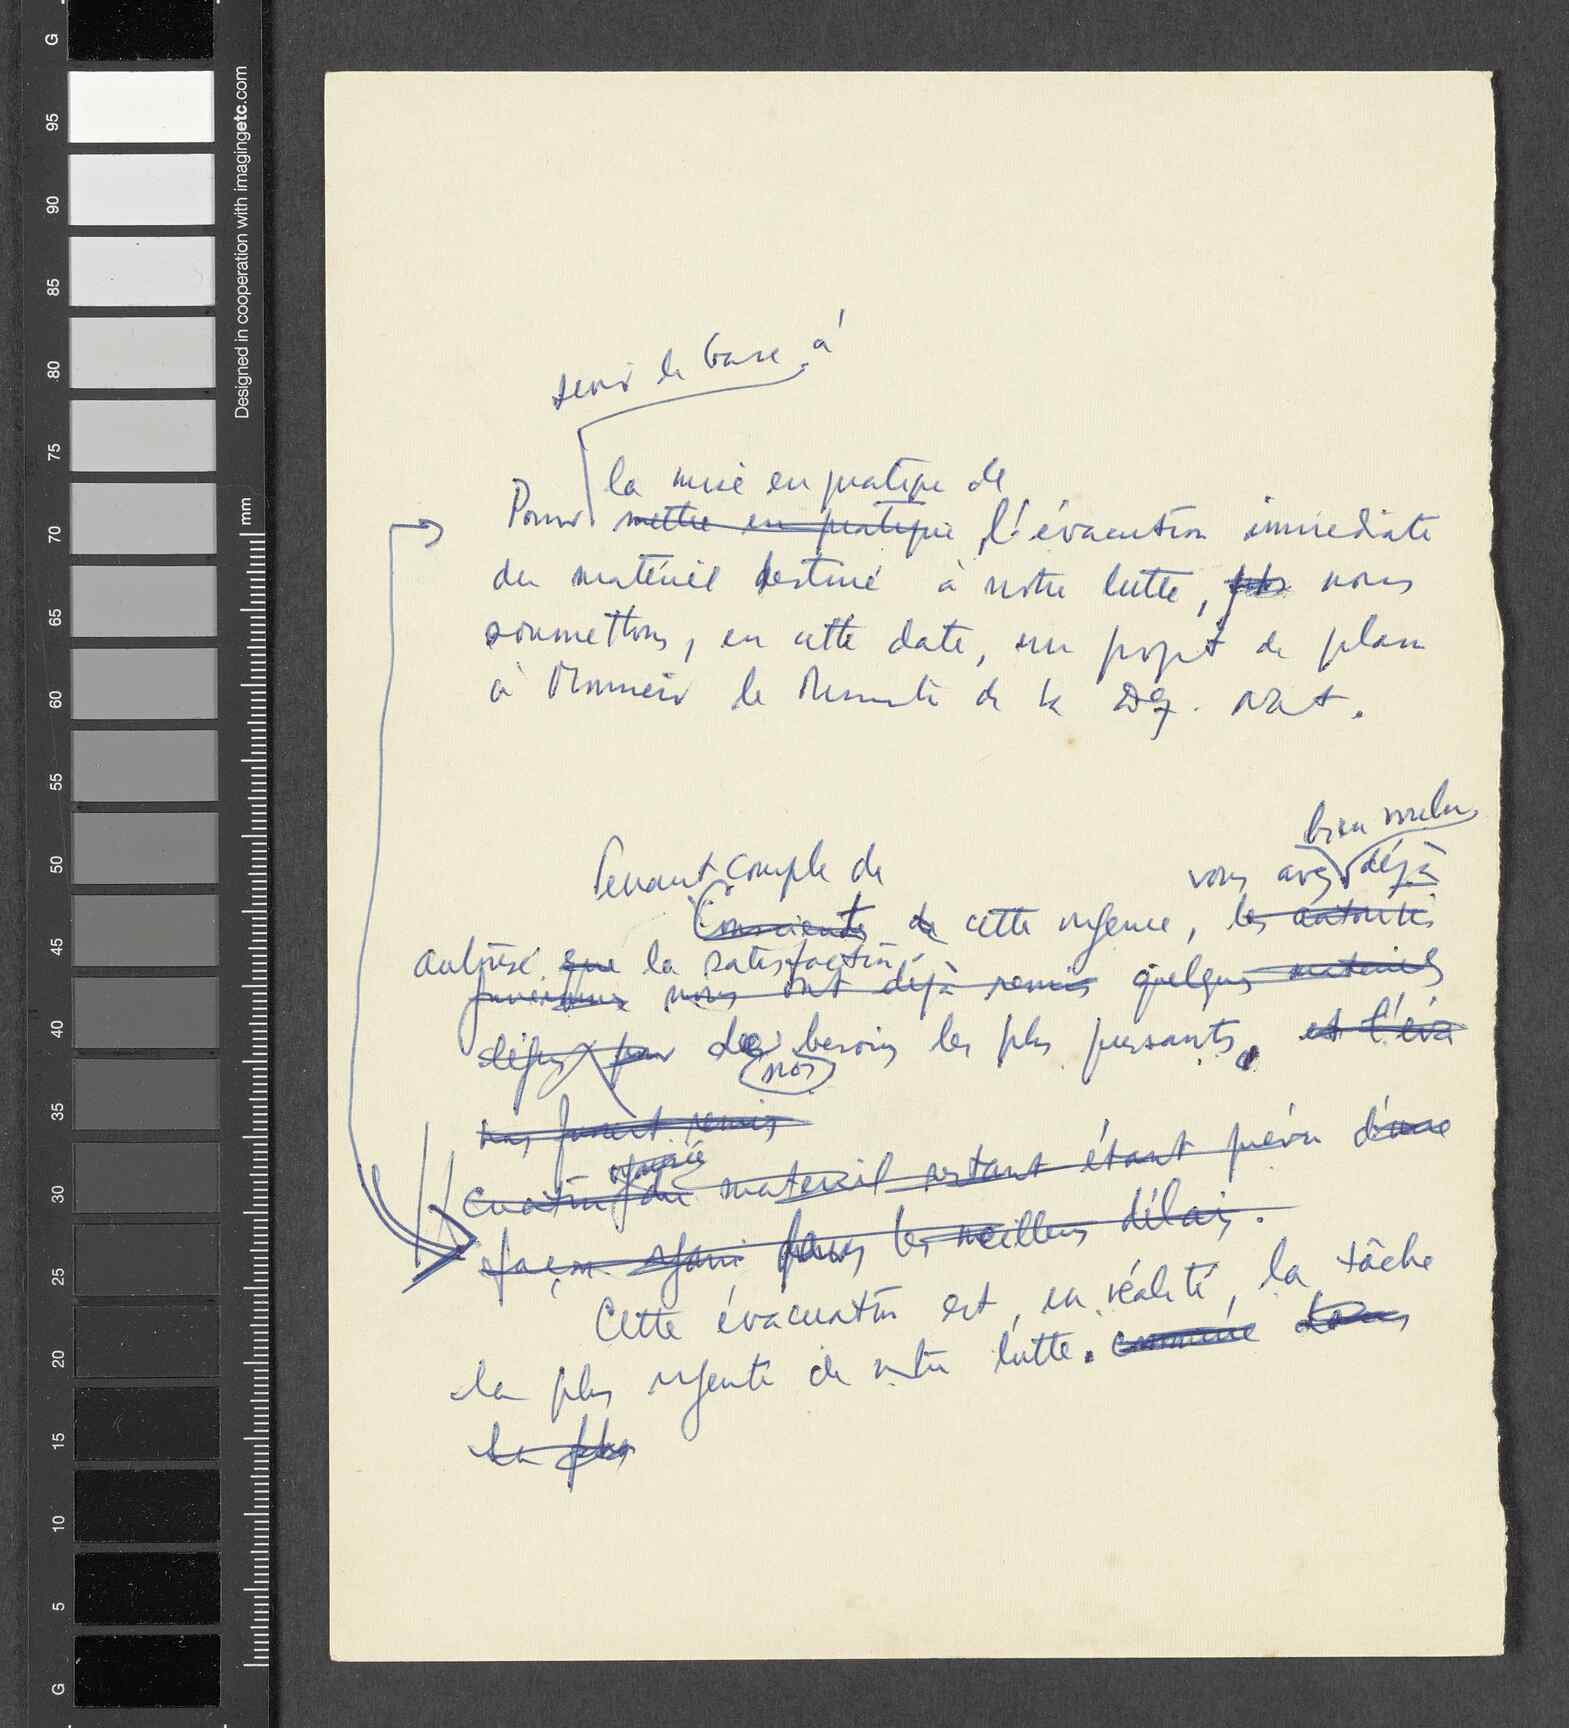 G
95
90
85
80
75
70
65
60
55
50
45
40
35
30
25
20
15
10
5
G
Designed in cooperation with imagingetc.com
mm
servir de base à
la mise en pratique de
Pour mettre en pratique l'évacuation immediate
du matériel destiné à notre lutte, nous
soumettons, en cette date, un projet de plan
à Monsieur le Ministre de la Déf. Nat.
bien voulu
Tenant compte de vous avez déjà
Conscients de cette urgence, les autorités
autorisé que la satisfaction
nous ont déjà remis quelques materiels
des besoins les plus pressants, et l'éva
nos
nous furent remis
cuation du materiel restant étant prévu d'une
façon dans les meilleurs délais.
Cette évacuation est, en réalité, la tâche
la plus urgente de notre lutte. comme
la plus